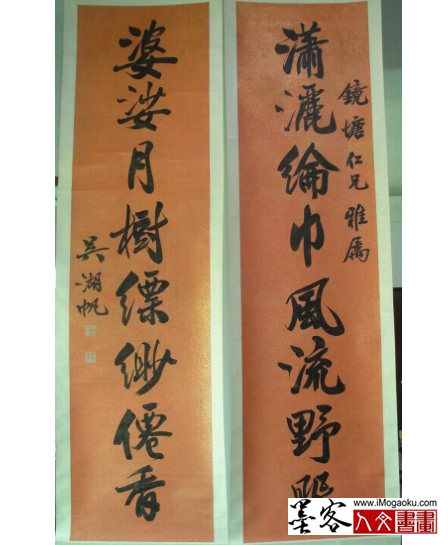 鏡塘仁兄雅屬
瀟灑綸巾風流野
婆娑月樹縹緲僊香
吳湖帆
墨客
www.iMogaoku.com
人文書畫